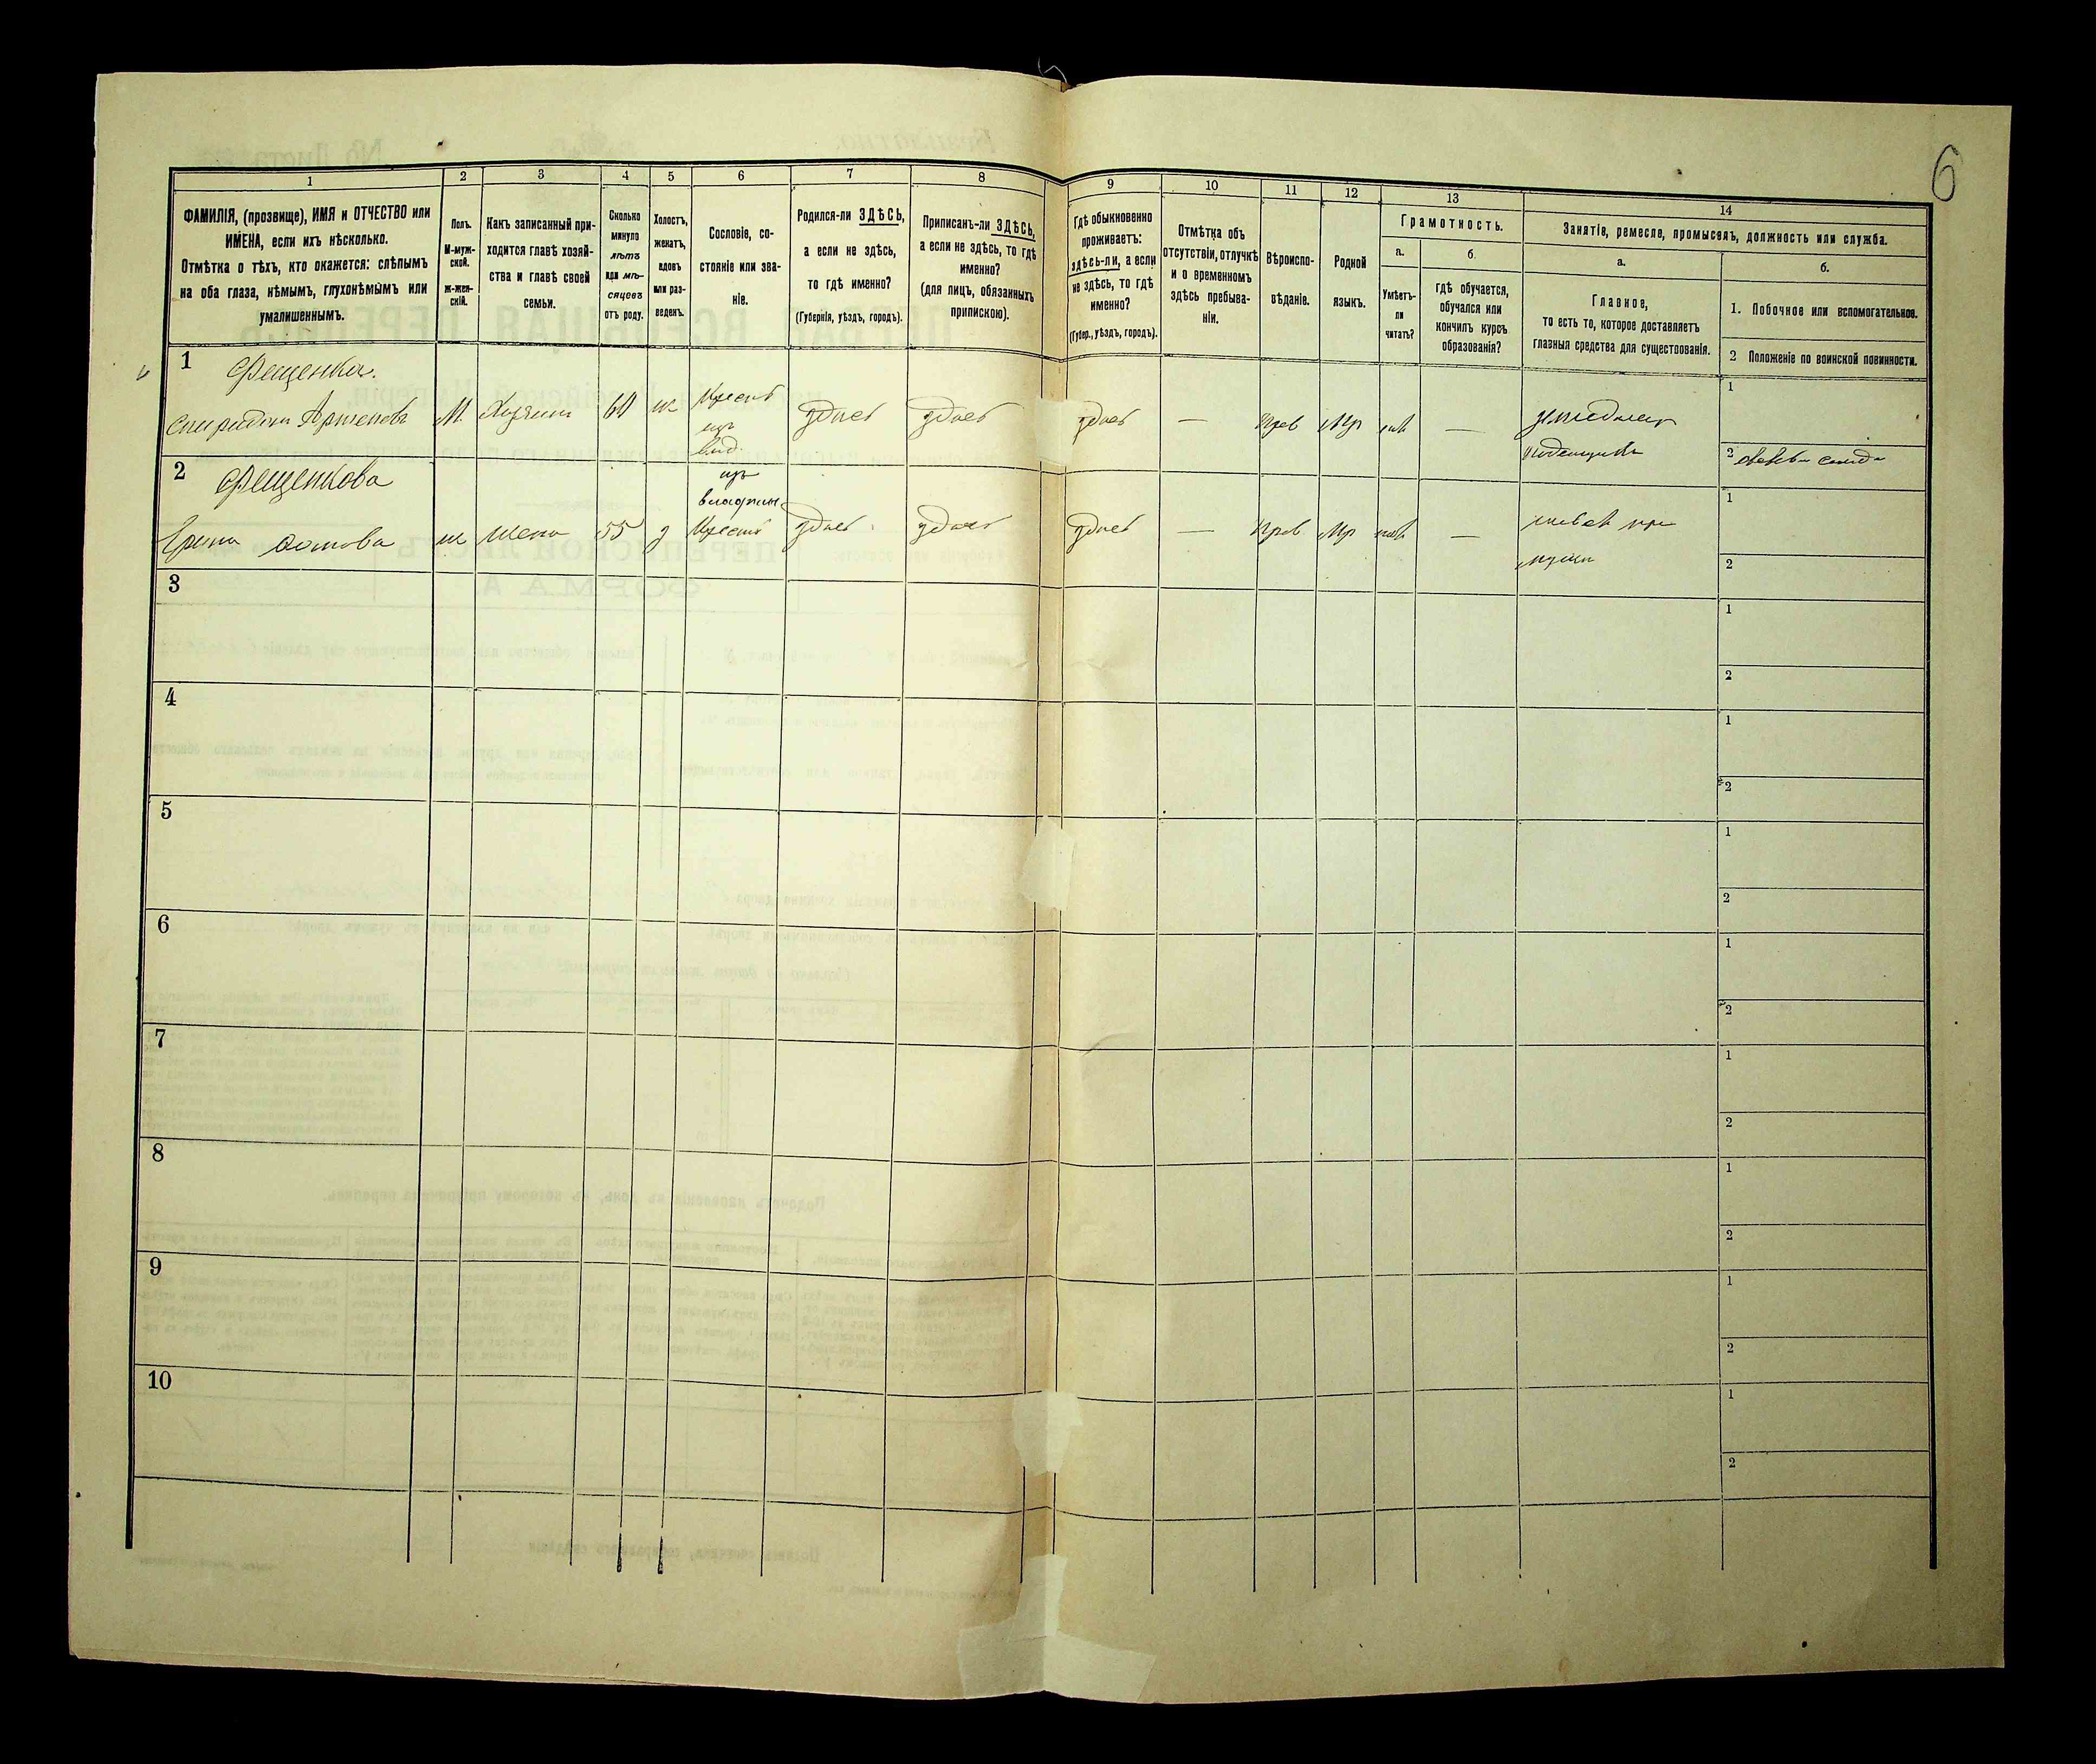 6
1
2
3
4
5
6
7
8
9
10
11
12
13
14
ФАМИЛІЯ, (прозвище), ИМЯ и ОТЧЕСТВО или
ИМЕНА, если ихъ нѣсколько.
Отмѣтка о тѣхъ, кто окажется: слѣпымъ
на оба глаза, нѣмымъ, глухонѣмымъ или
умалишеннымъ.
Полъ.
М-муж-
ской.
ж-жен-
скій.
Какъ записанный при-
ходится главѣ хозяй-
ства и главѣ своей
семьи.
Сколько
минуло
лѣтъ
или мѣ-
сяцевъ
отъ роду.
Холостъ,
женатъ,
вдовъ
или раз-
веденъ.
Сословіе, со-
стояніе или зва-
ніе.
Родился-ли ЗДѢСЬ,
а если не здѣсь,
то гдѣ именно?
(Губернія, уѣздъ, городъ).
Приписанъ-ли ЗДѢСЬ,
а если не здѣсь, то гдѣ
именно?
(для лицъ, обязанныхъ
припискою).
Гдѣ обыкновенно
проживаетъ:
здѣсь-ли, а если
не здѣсь, то гдѣ
именно?
(Губер., уѣздъ, городъ).
Отмѣтка объ
отсутствіи, отлучкѣ
и о временномъ
здѣсь пребыва-
ніи.
Вѣроиспо-
вѣданіе.
Родной
языкъ.
Грамотность.
а.
Умѣетъ-
ли
читать?
б.
гдѣ обучается,
обучался или
кончилъ курсъ
образованія?
Занятіе, ремесло, промыселъ, должность или служба.
а.
Главное,
то есть то, которое доставляетъ
главныя средства для существованія.
б.
1. Побочное или вспомогательное.
2 Положеніе по воинской повинности.
1
Фещенко.
Спиридонъ Артемовъ
М
Хозяинъ
60
Крест
изъ
влад.
здѣсь
здѣсь
здѣсь
—
Прав
Мр
—
1
2
2
Фещенкова
Ирина
ж
жена
55
з
изъ
Крест
здѣсь
здѣсь
здѣсь
—
Прав
Мр
—
при
мужи
1
2
3
1
2
4
1
2
5
1
2
6
1
2
7
1
2
8
1
2
9
1
2
10
1
2